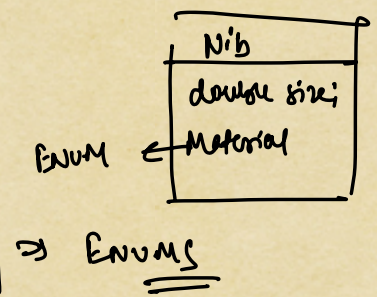 Nib
double size;
ENUM ← Material
⇒ ENUMS